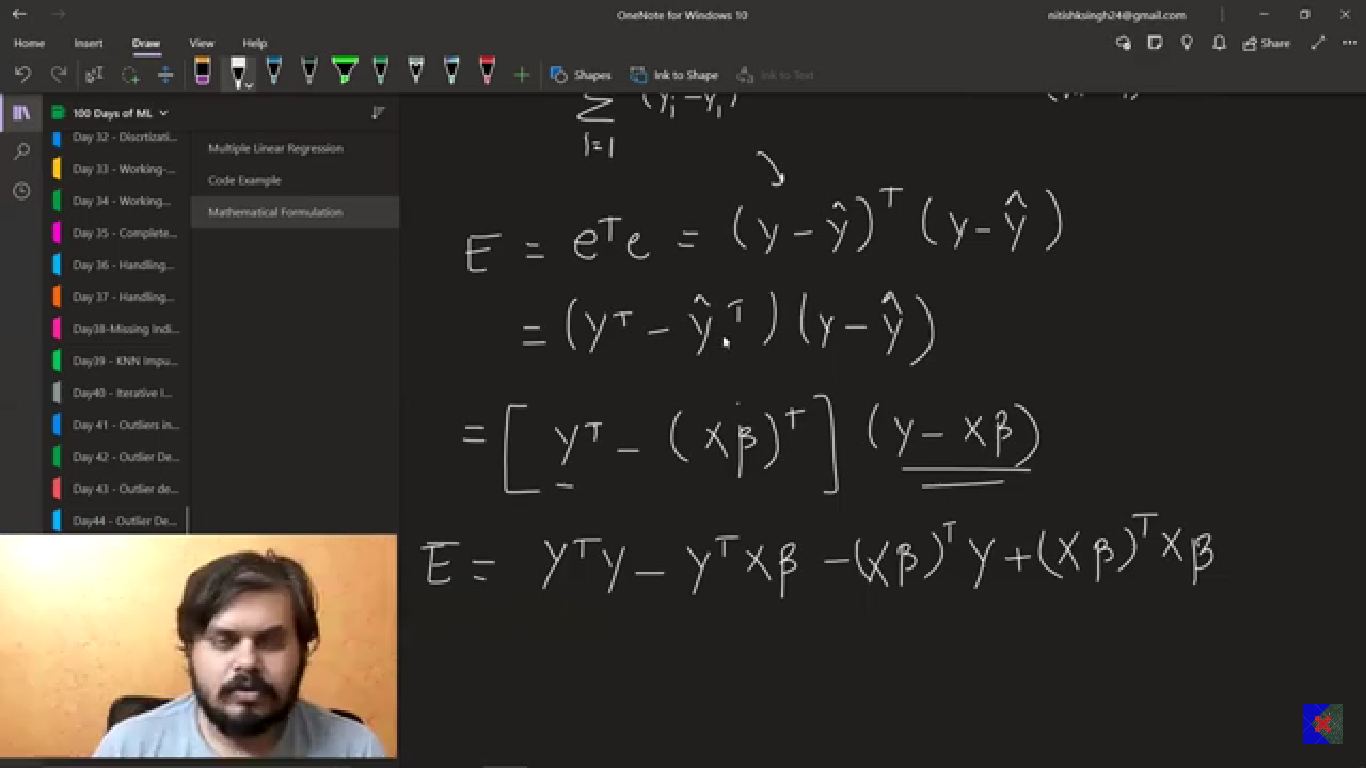 OneNote for Windows 10
nitishksingh24@gmail.com
Home Insert Draw View Help
Share
Shapes Ink to Shape Ink to Text
100 Days of ML
Day 32 - Discrtizati...
Day 33 - Working-...
Day 34 - Working...
Day 35 - Complete...
Day 36 - Handling...
Day 37 - Handling...
Day38-Missing Indi...
Day39 - KNN Impu...
Day40 - Iterative I...
Day 41 - Outliers in...
Day 42 - Outlier De...
Day 43 - Outlier de...
Day44 - Outlier De...
Multiple Linear Regression
Code Example
Mathematical Formulation
Σ (yᵢ - yᵢ)
i=1
E = eᵀe = (y - ŷ)ᵀ (y - ŷ)
= (yᵀ - ŷᵀ) (y - ŷ)
= [yᵀ - (Xβ)ᵀ] (y - Xβ)
E = yᵀy - yᵀXβ - (Xβ)ᵀy + (Xβ)ᵀXβ